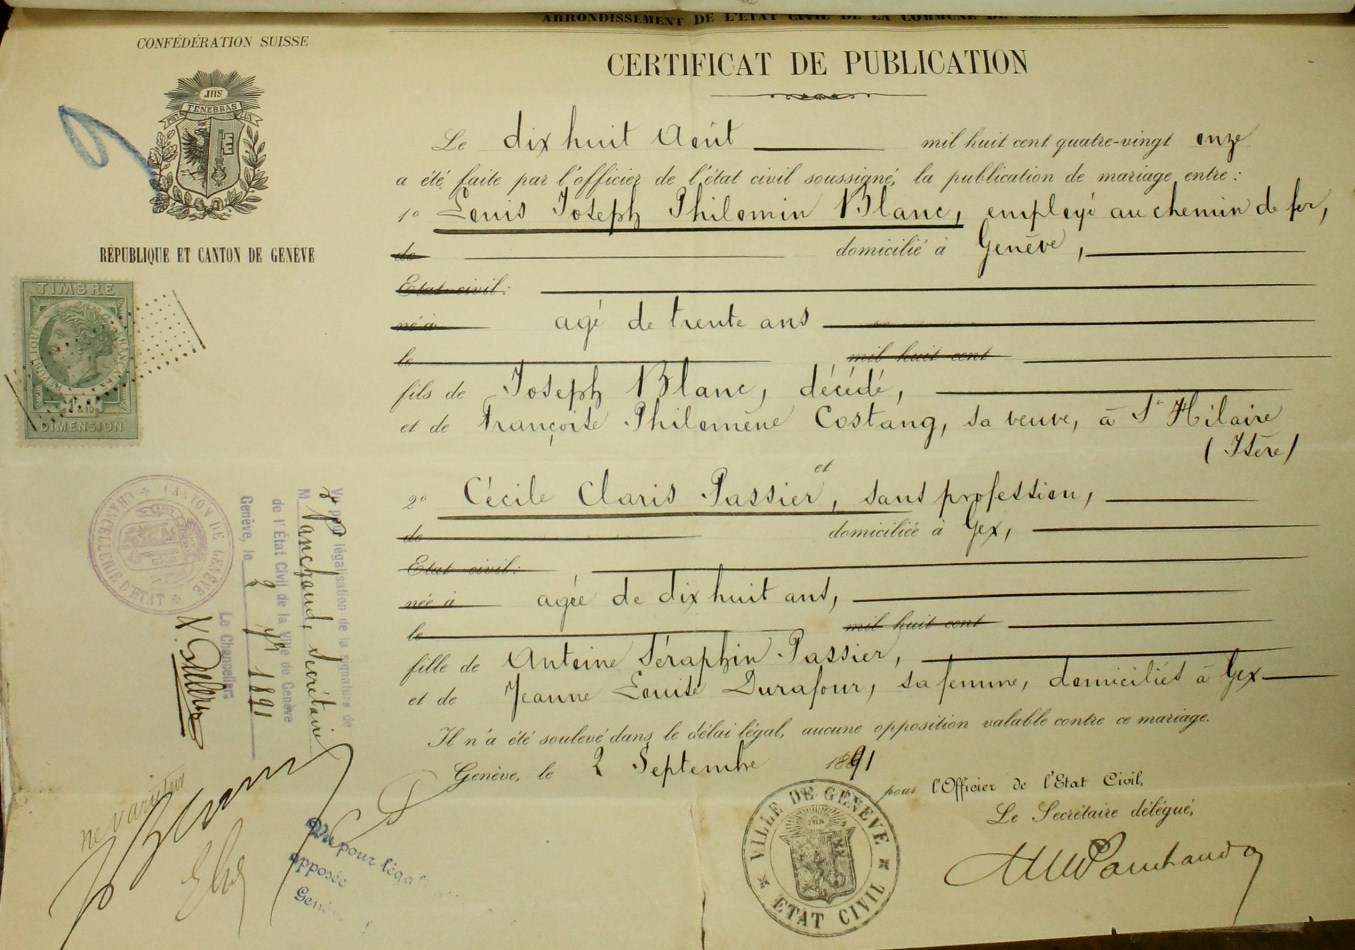 ARRONDISSEMENT DE L'ÉTAT CIVIL DE LA COMMUNE DE GENÈVE
CONFÉDÉRATION SUISSE
JHS
POST TENEBRAS LUX
RÉPUBLIQUE ET CANTON DE GENÈVE
TIMBRE
DIMENSION
CERTIFICAT DE PUBLICATION
Le dix huit Août mil huit cent quatre-vingt onze
a été faite par l'officier de l'état civil soussigné, la publication de mariage entre:
1º Louis Joseph Philomin Blanc, employé au chemin de fer,
de domicilié à Genève,
Etat civil:
né à agé de trente ans
le mil huit cent
fils de Joseph Blanc, décédé,
et de Françoise Philomène Costang, sa veuve, à St Hilaire
(Isère)
et
2º Cécile Claris Passier, sans profession,
de domiciliée à Gex,
Etat civil:
née à agée de dix huit ans,
le mil huit cent
fille de Antoine Séraphin Passier,
et de Jeanne Louise Durafour, sa femme, domiciliés à Gex
Il n'a été soulevé dans le délai légal, aucune opposition valable contre ce mariage.
Genève, le 2 Septembre 1891
pour l'Officier de l'Etat Civil,
Le Secrétaire délégué,
VILLE DE GENÈVE
ETAT CIVIL
CANTON DE GENÈVE
CHANCELLERIE D'ETAT
Vu pour légalisation de la signature de
M. Panchaud, Secrétaire
de l'État Civil de la Ville de Genève
Genève, le 2 7bre 1891
Le Chancelier
ne varietur
Vu pour léga
apposée
Genè